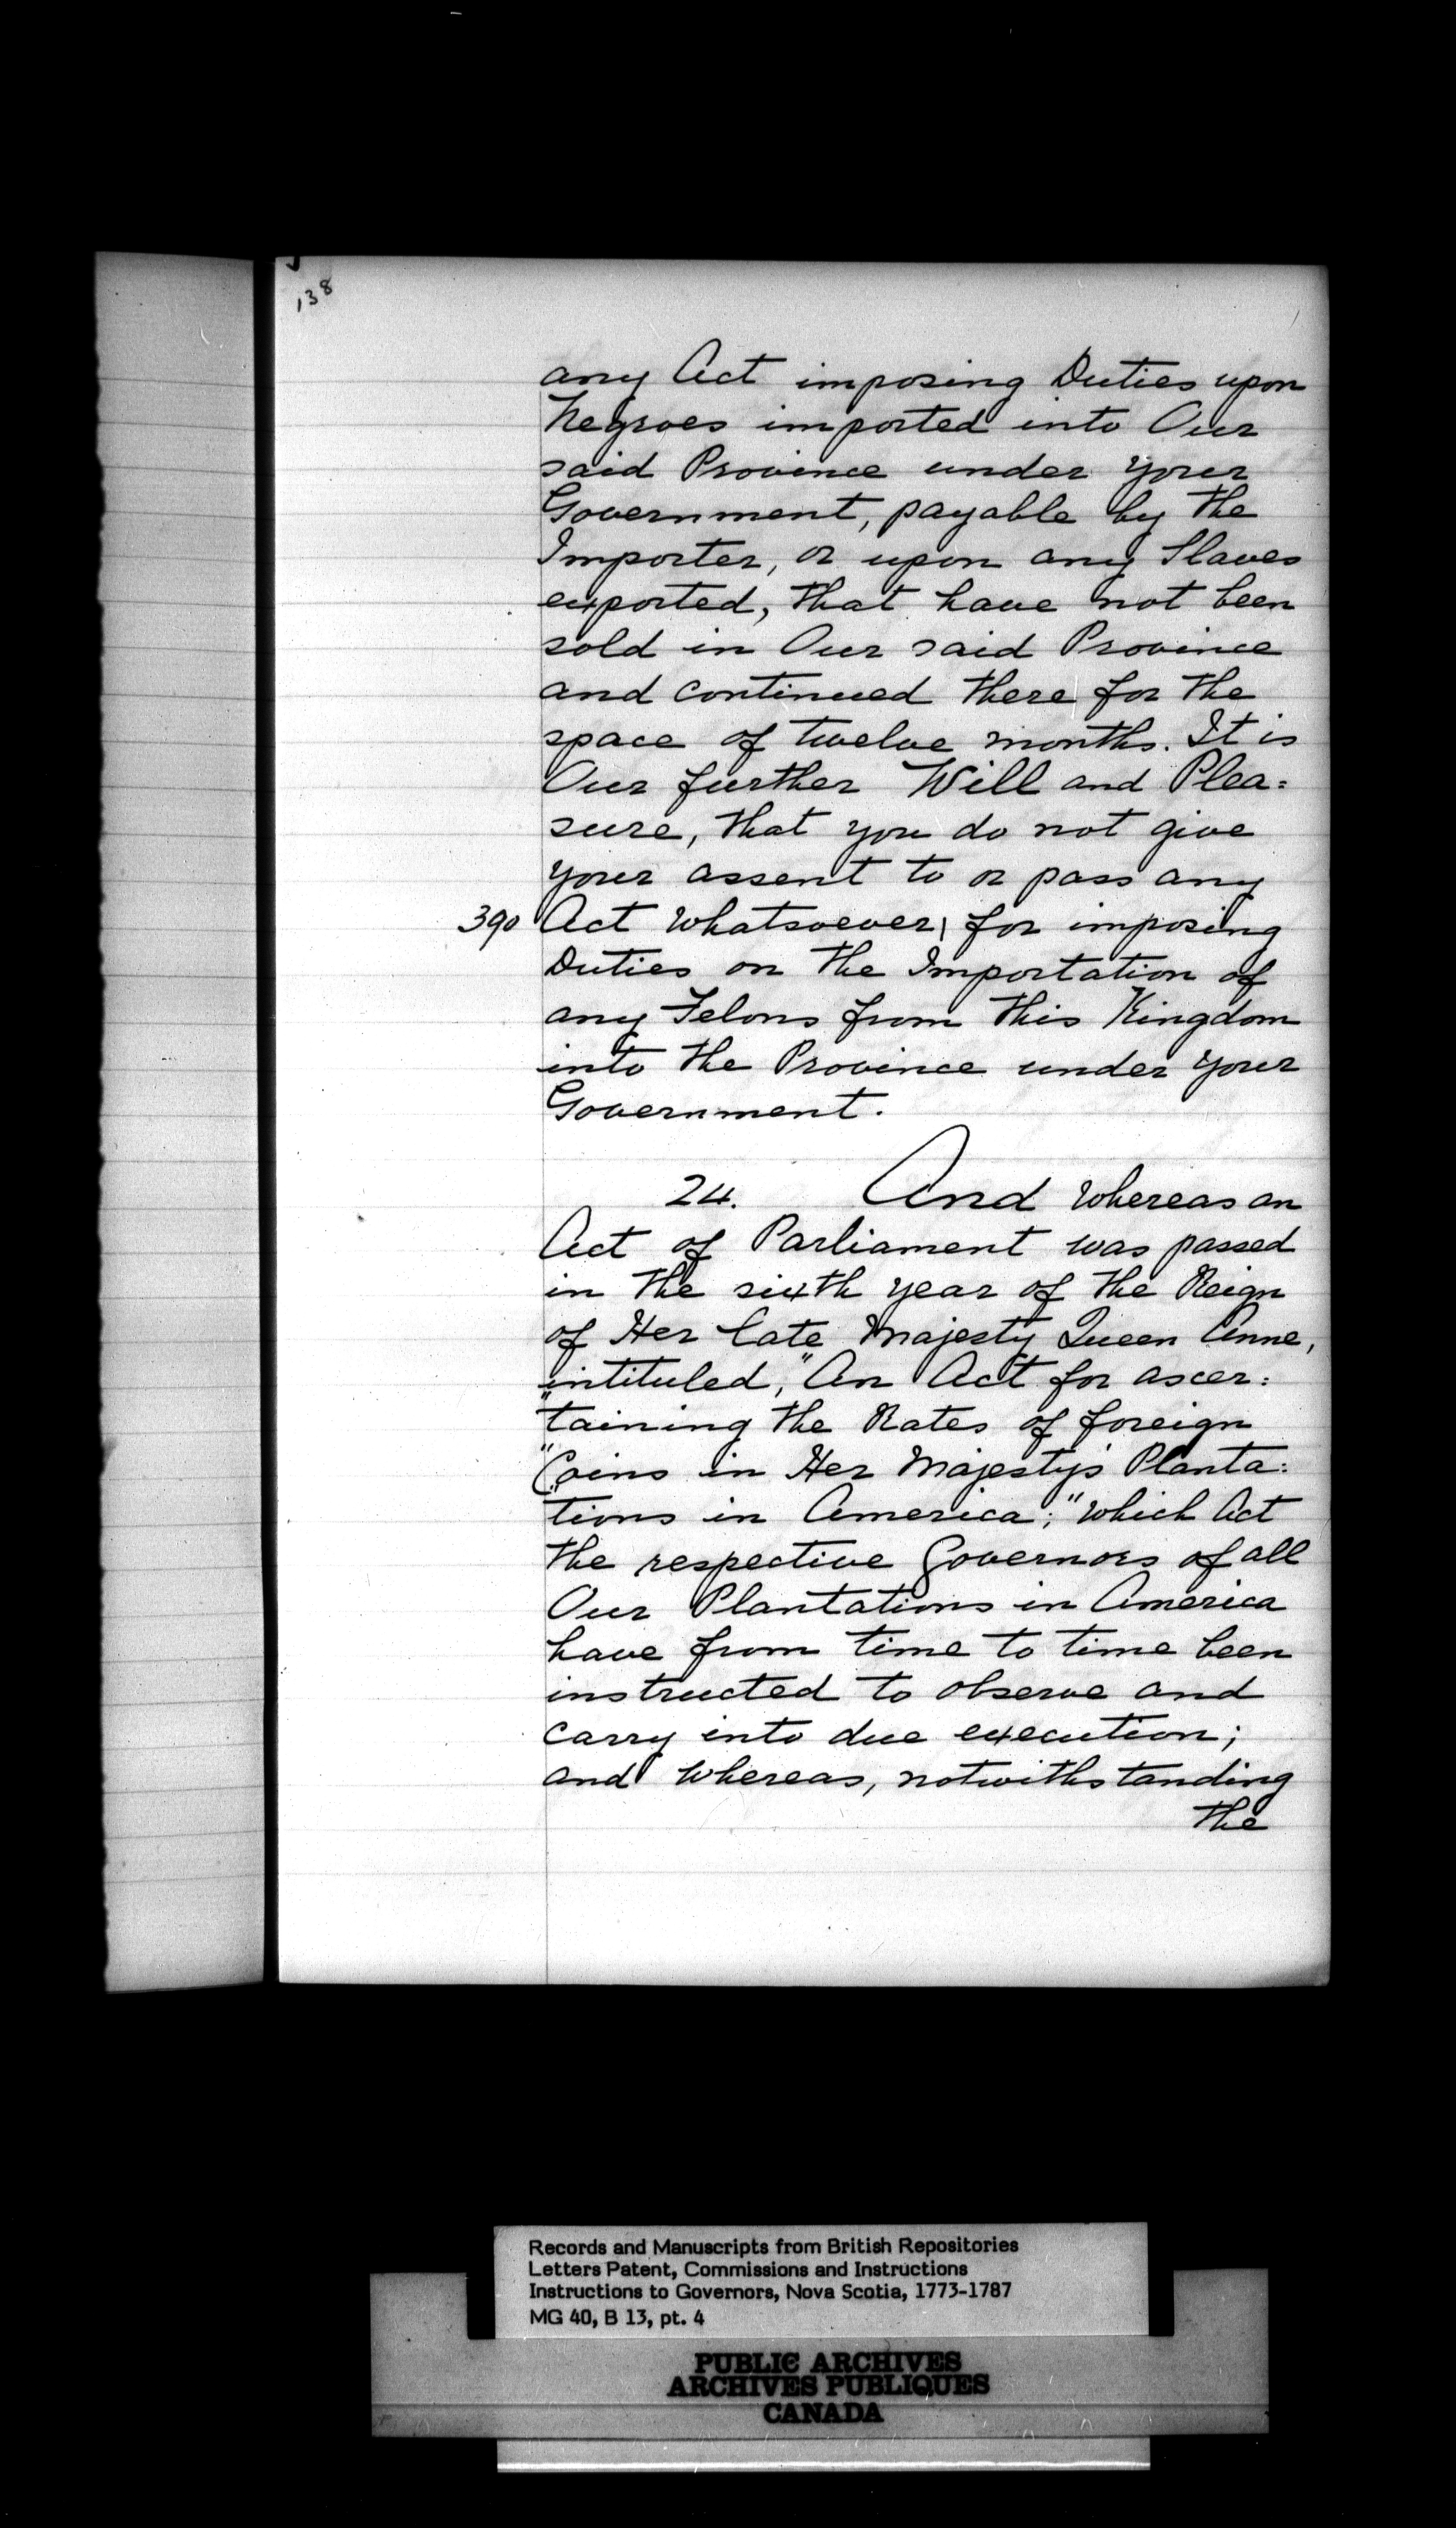 138
any Act imposing Duties upon
Negroes imported into Our
said Province under your
Government, payable by the
Importer, or upon any Slaves
exported, that have not been
sold in Our said Province
and continued there for the
space of twelve months. It is
Our further Will and Plea:
sure, that you do not give
your assent to or pass any
390 Act whatsoever, for imposing
Duties on the Importation of
any Felons from this Kingdom
into the Province under your
Government.
24. And whereas an
Act of Parliament was passed
in the sixth year of the Reign
of Her late Majesty Queen Anne,
intituled, "An Act for ascer:
"taining the Rates of foreign
"Coins in Her Majesty's Planta:
"tions in America;" which Act
the respective Governors of all
Our Plantations in America
have from time to time been
instructed to observe and
carry into due execution;
and whereas, notwithstanding
the
Records and Manuscripts from British Repositories
Letters Patent, Commissions and Instructions
Instructions to Governors, Nova Scotia, 1773-1787
MG 40, B 13, pt. 4
PUBLIC ARCHIVES
ARCHIVES PUBLIQUES
CANADA